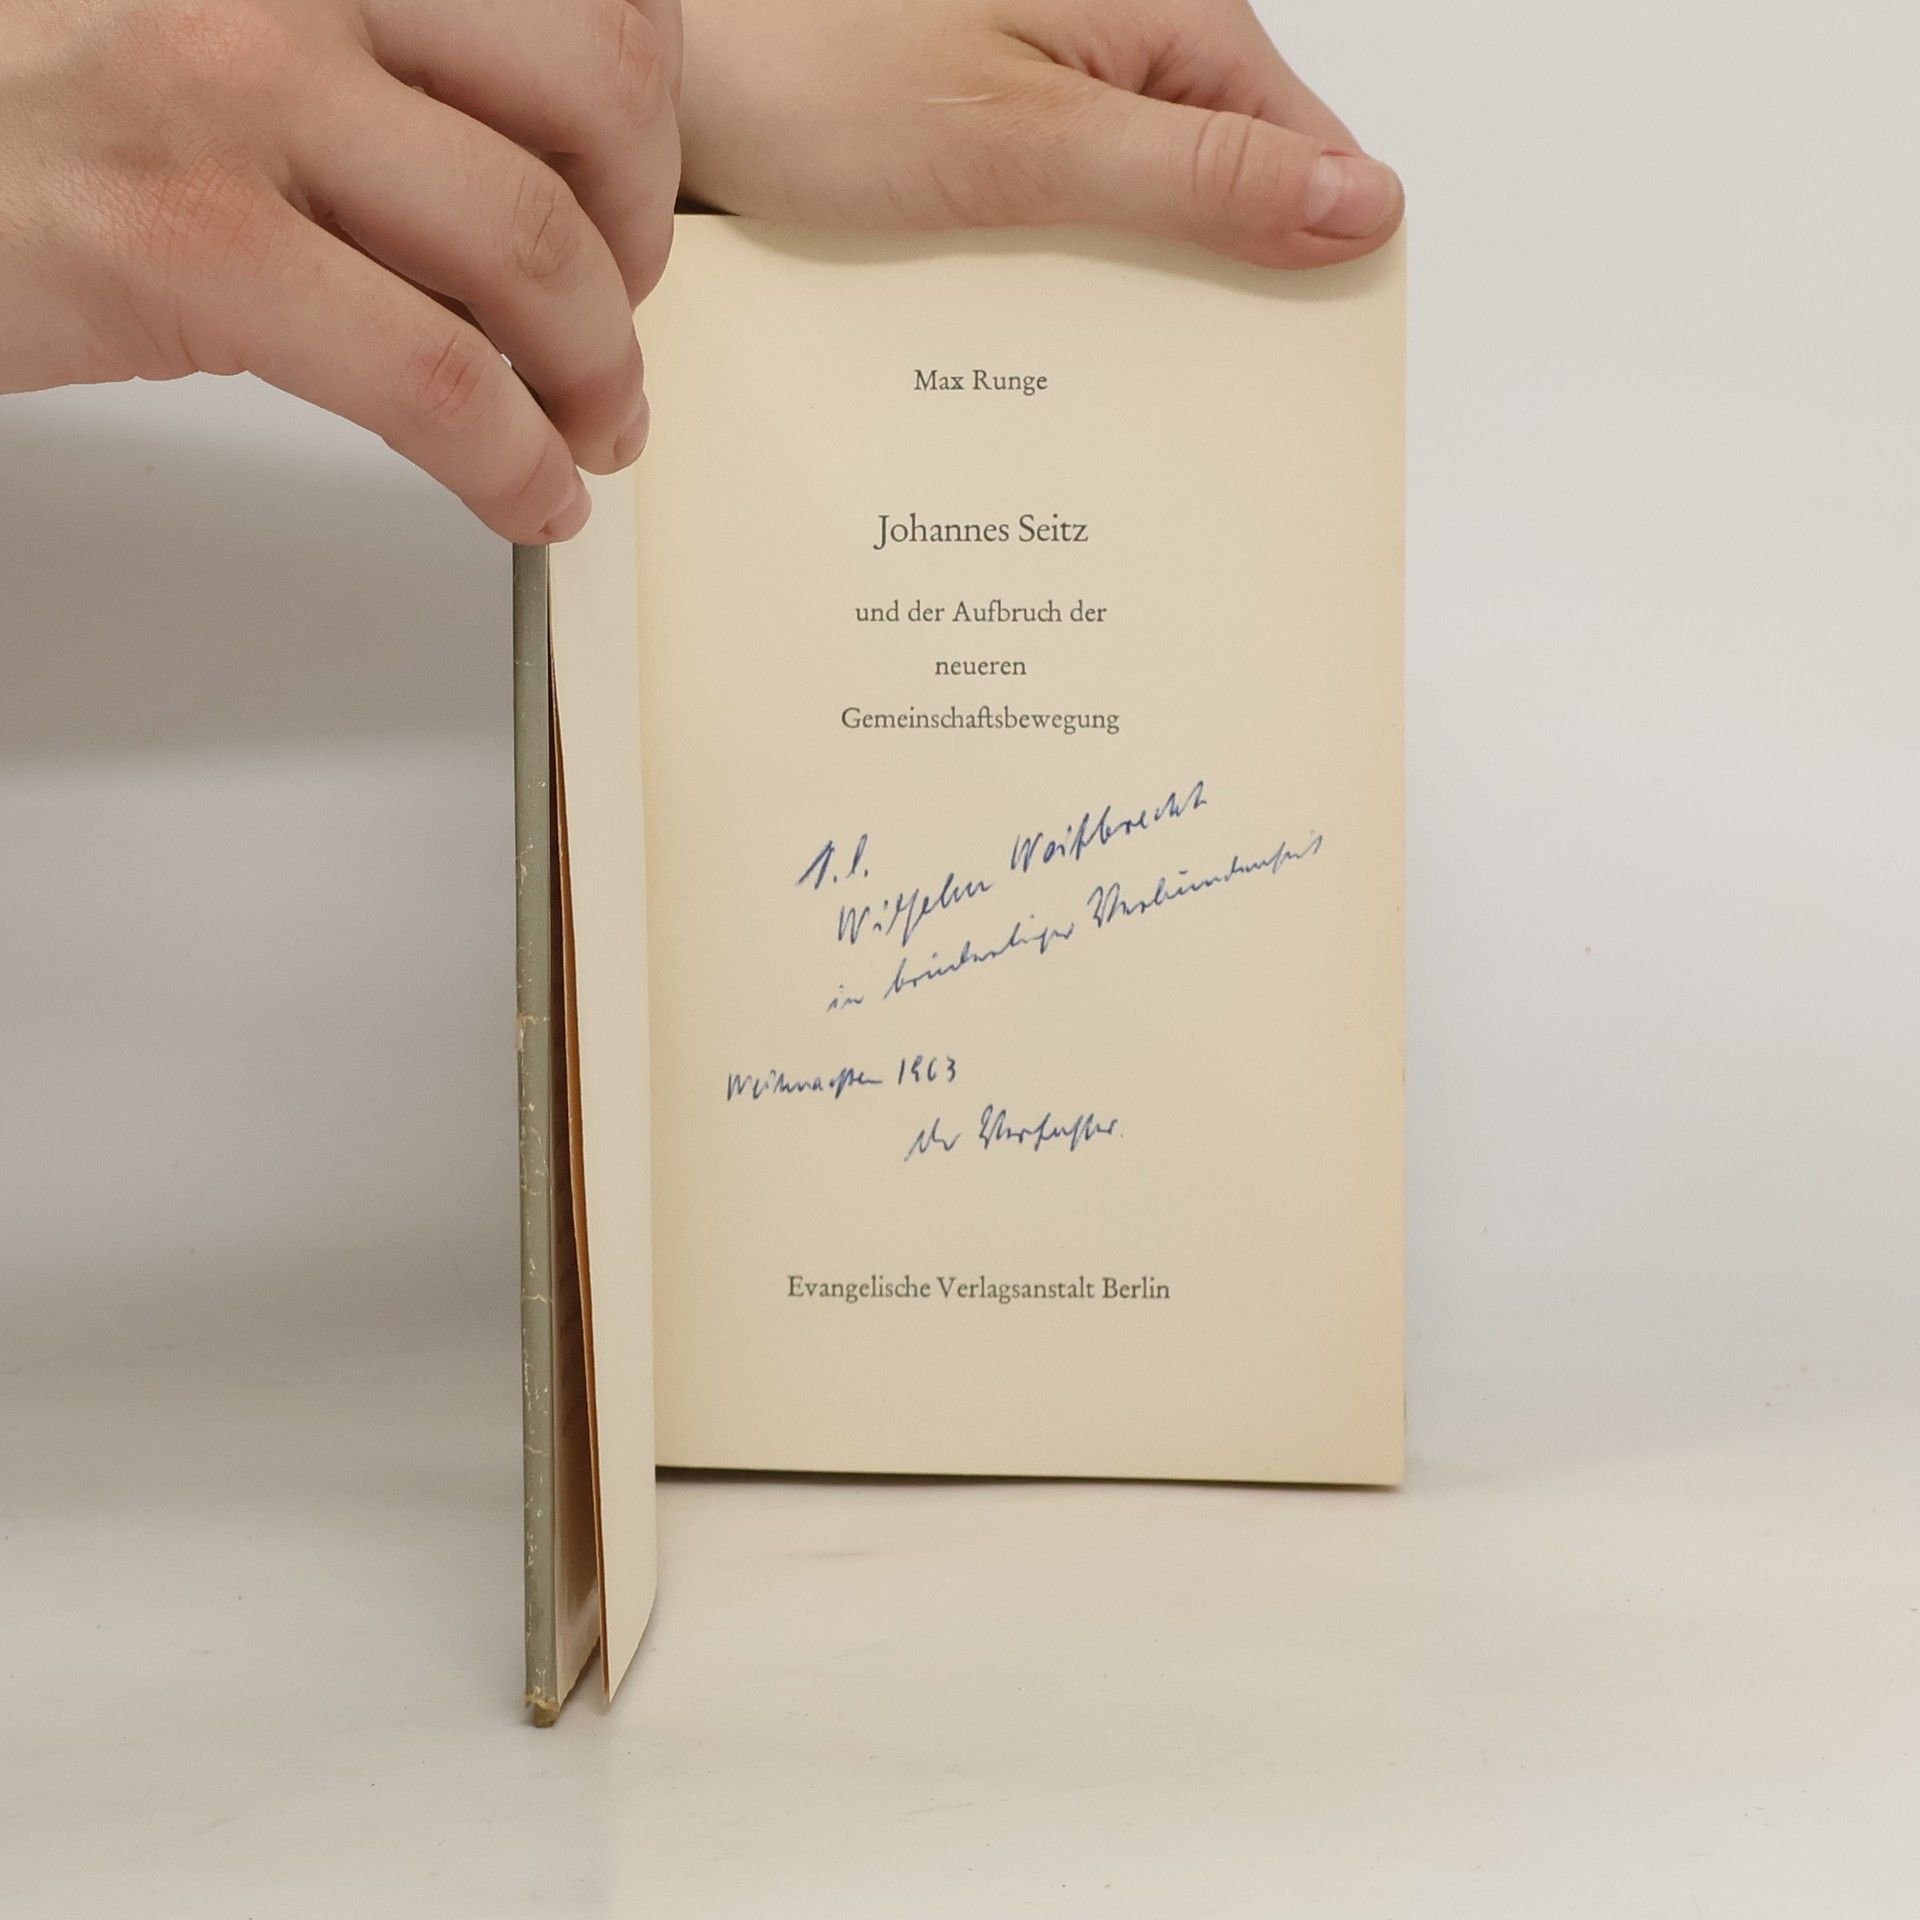 Max Runge
Johannes Seitz
und der Aufbruch der
neueren
Gemeinschaftsbewegung
Wilhelm Weißbrecht
in brüderlicher Verbundenheit
Weihnachten 1963
der Verfasser.
Evangelische Verlagsanstalt Berlin